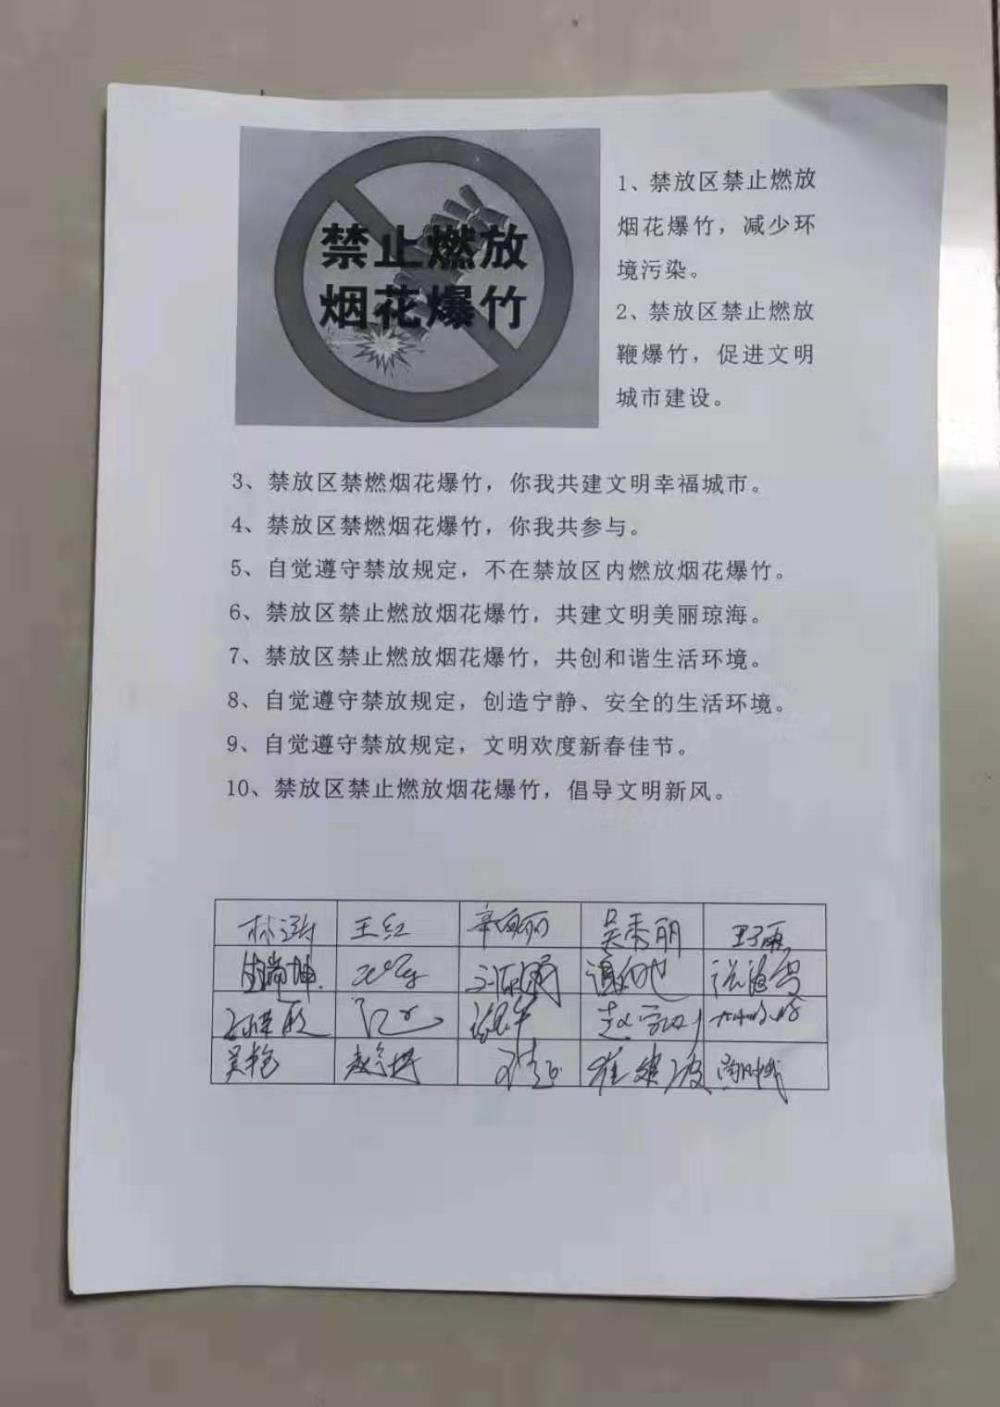 禁止燃放
烟花爆竹
1、禁放区禁止燃放
烟花爆竹，减少环
境污染。
2、禁放区禁止燃放
鞭爆竹，促进文明
城市建设。
3、禁放区禁燃烟花爆竹，你我共建文明幸福城市。
4、禁放区禁燃烟花爆竹，你我共参与。
5、自觉遵守禁放规定，不在禁放区内燃放烟花爆竹。
6、禁放区禁止燃放烟花爆竹，共建文明美丽琼海。
7、禁放区禁止燃放烟花爆竹，共创和谐生活环境。
8、自觉遵守禁放规定，创造宁静、安全的生活环境。
9、自觉遵守禁放规定，文明欢度新春佳节。
10、禁放区禁止燃放烟花爆竹，倡导文明新风。
王红
吴秀丽
崔建波